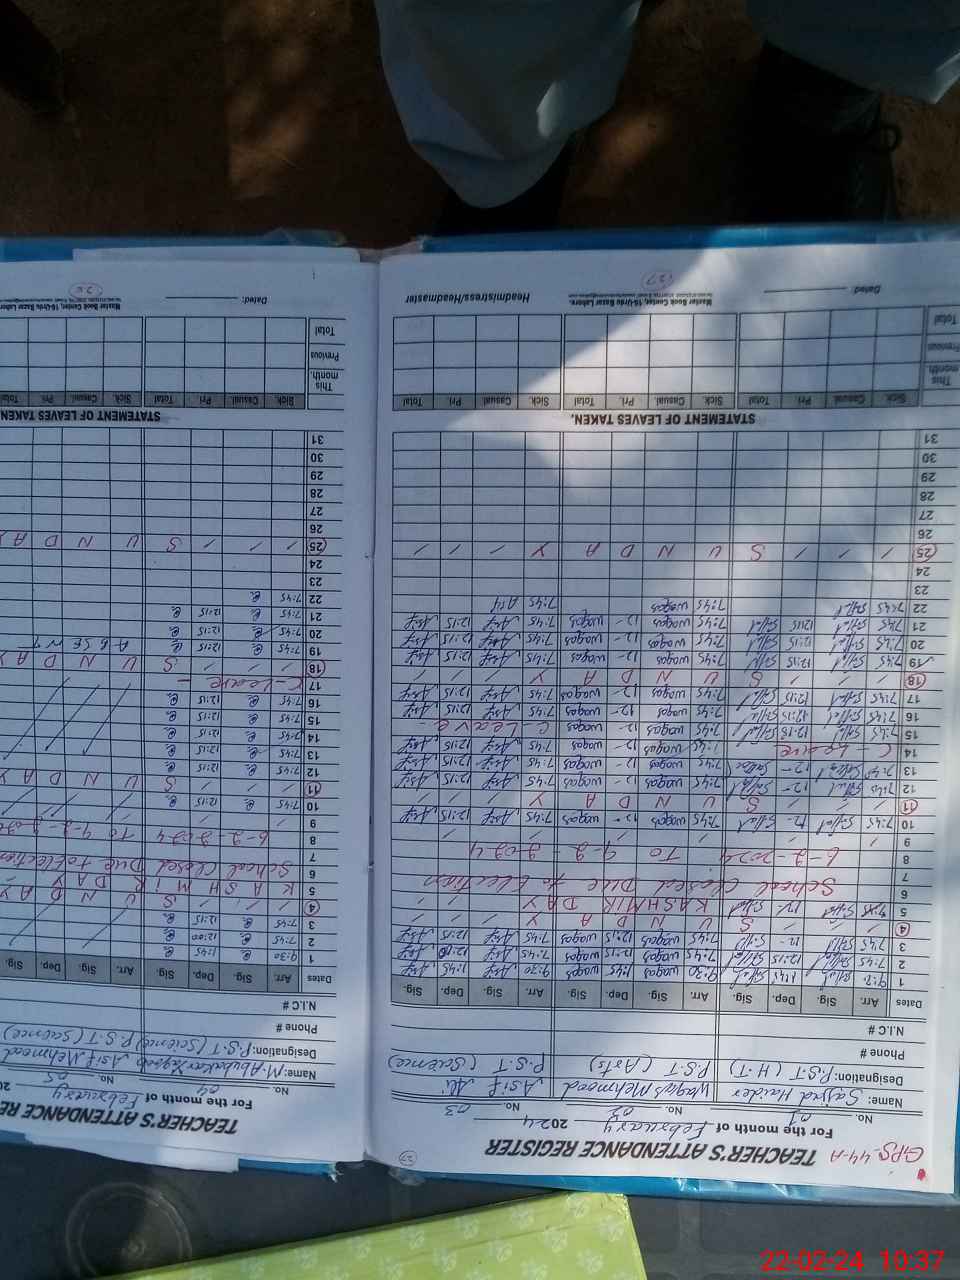 GPS 44-A TEACHER'S ATTENDANCE REGISTER
For the month of February 2024
No. 01 No. 02 No. 03
Name: Sajjad Haider Waqas Mehmood Asif Ali
Designation: P.S.T (H.T) P.S.T (Arts) P.S.T (Science)
Phone #
N.I.C #
Dates Arr. Sig. Dep. Sig. Arr. Sig. Dep. Sig. Arr. Sig. Dep. Sig.
1 1:45 9:30 waqas 1:45 waqas 9:30 Asif 1:45 Asif
2 7:45 12:15 7:45 waqas 12:15 waqas 7:45 Asif Asif
3 7:45 12- 7:45 waqas 12:15 waqas 7:45 Asif 12:15 Asif
4 S U N D A Y
5 KASHMIR DAY
6 School Closed Due to Election
7
8 6-2-2024 TO 9-2-2024
9
10 7:45 12- 7:45 waqas 12- waqas 7:45 Asif 12:15 Asif
11 S U N D A Y
12 7:45 12- 7:45 waqas 12- waqas 7:45 Asif 12:15 Asif
13 7:45 12- 7:45 waqas 12- waqas 7:45 Asif 12:15 Asif
14 C-Leave 7:45 waqas 12- waqas 7:45 Asif 12:15 Asif
15 7:45 7:45 waqas 12- waqas C-Leave
16 7:45 12:15 7:45 waqas 12- waqas 7:45 Asif 12:15 Asif
17 7:45 12:15 7:45 waqas 12- waqas 7:45 Asif 12:15 Asif
18 S U N D A Y
19 7:45 12:15 7:45 waqas 12- waqas 7:45 Asif 12:15 Asif
20 7:45 12:15 7:45 waqas 12- waqas 7:45 Asif 12:15 Asif
21 7:45 12:15 7:45 waqas 12- waqas 7:45 Asif 12:15 Asif
22 7:45 7:45 waqas 7:45 Asif
23
24
25 S U N D A Y
26
27
28
29
30
31
STATEMENT OF LEAVES TAKEN.
Sick Casual Pri Total Sick Casual Pri Total Sick Casual Pri Total
This month.
Previous
Total
Dated: Master Book Center, 16-Urdu Bazar Lahore Headmistress/Headmaster
27
TEACHER'S ATTENDANCE RE
For the month of February 20
No. 04 No. 05
Name: M. Abubakar Asif Mehmood
Designation: P.S.T (Science) P.S.T (Science)
Phone #
N.I.C #
Dates Arr. Sig. Dep. Sig. Arr. Sig.
1 9:30 1:45
2 7:45 12:00
3 7:45 12:15
4 S U N D A Y
5 K A S H M I R D A Y
6 School Closed Due to Election
7
8 6-2-2024 TO 9-2-20
9
10 7:45 12:15
11 S U N D A Y
12 7:45 12:15
13 7:45 12:15
14 7:45 12:15
15 7:45 12:15
16 7:45 12:15
17 C-Leave
18 S U N D A Y
19 7:45 12:15 A B S E N T
20 7:45 12:15
21 7:45 12:15
22 7:45
23
24
25 S U N D A Y
26
27
28
29
30
31
STATEMENT OF LEAVES TAKEN
Sick Casual Pri Total Sick Casual Pri Total
This month.
Previous
Total
Dated: Master Book Center, 16-Urdu Bazar Lahore
22-02-24 10:37